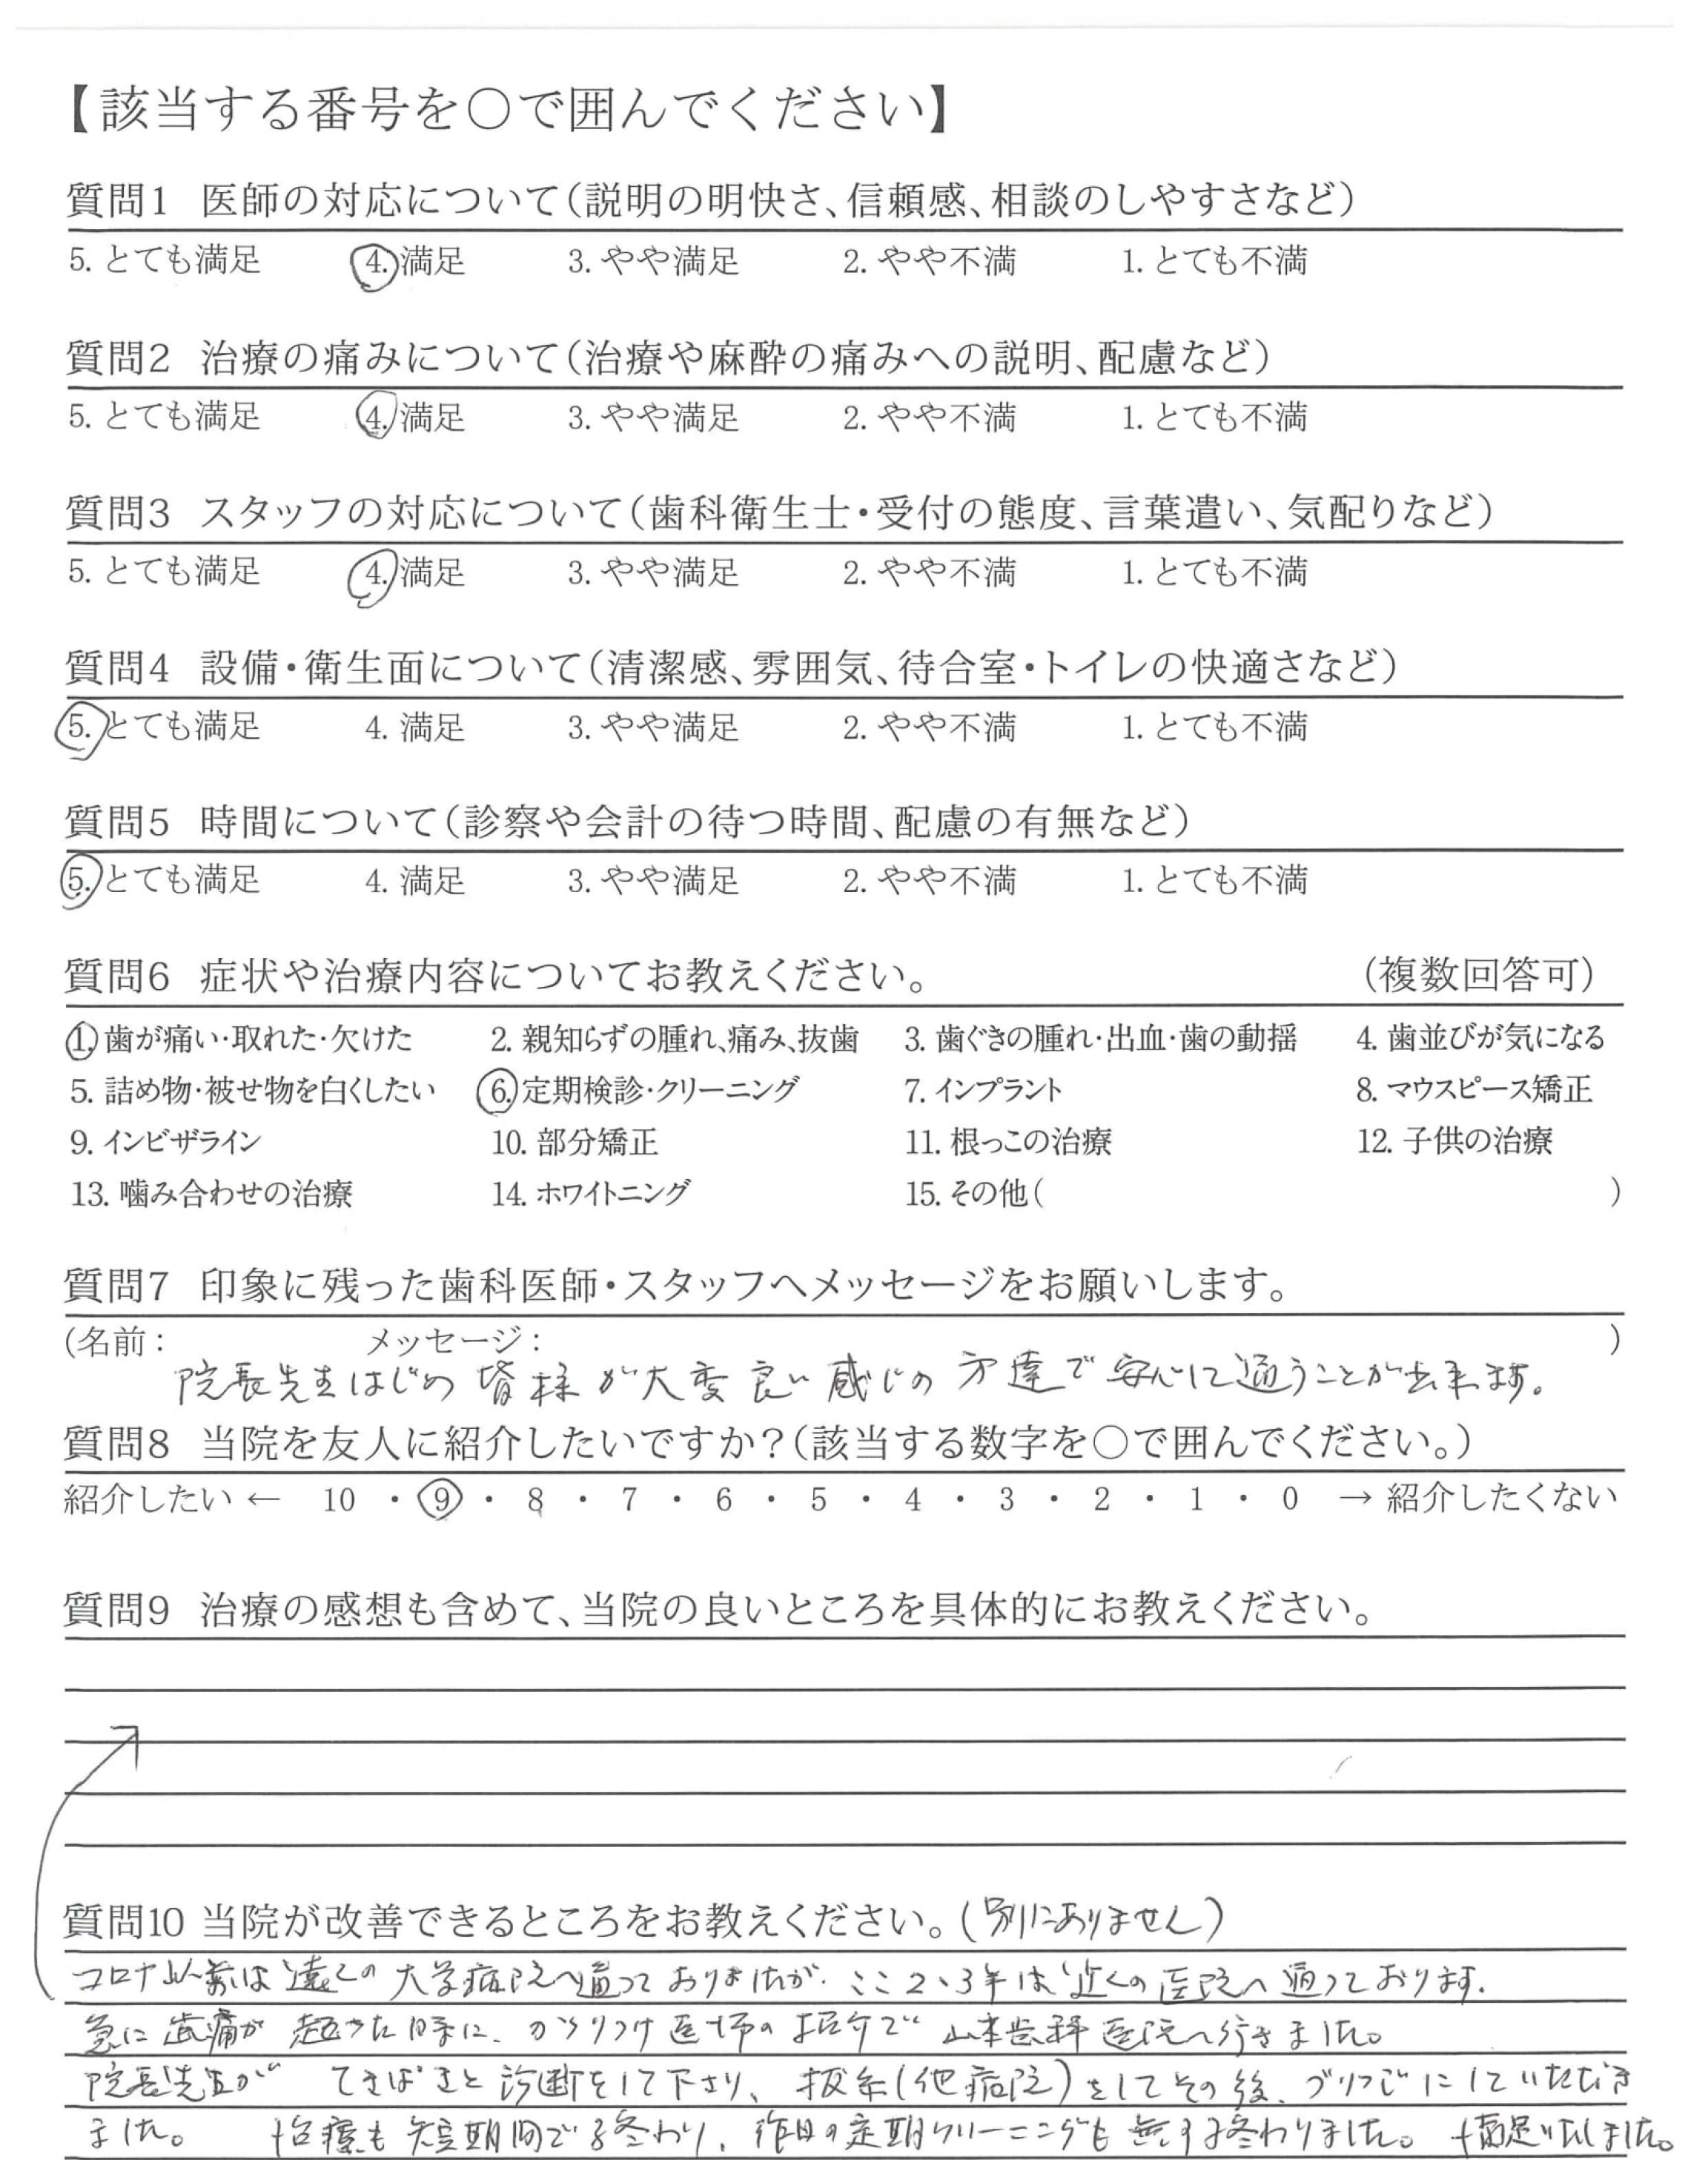 【該当する番号を○で囲んでください】
質問1 医師の対応について(説明の明快さ、信頼感、相談のしやすさなど)
5. とても満足 4. 満足 3. やや満足 2. やや不満 1. とても不満
質問2 治療の痛みについて(治療や麻酔の痛みへの説明、配慮など)
5. とても満足 4. 満足 3. やや満足 2. やや不満 1. とても不満
質問3 スタッフの対応について(歯科衛生士・受付の態度、言葉遣い、気配りなど)
5. とても満足 4. 満足 3. やや満足 2. やや不満 1. とても不満
質問4 設備・衛生面について(清潔感、雰囲気、待合室・トイレの快適さなど)
5. とても満足 4. 満足 3. やや満足 2. やや不満 1. とても不満
質問5 時間について(診察や会計の待つ時間、配慮の有無など)
5. とても満足 4. 満足 3. やや満足 2. やや不満 1. とても不満
質問6 症状や治療内容についてお教えください。 (複数回答可)
1. 歯が痛い・取れた・欠けた 2. 親知らずの腫れ、痛み、抜歯 3. 歯ぐきの腫れ・出血・歯の動揺 4. 歯並びが気になる
5. 詰め物・被せ物を白くしたい 6. 定期検診・クリーニング 7. インプラント 8. マウスピース矯正
9. インビザライン 10. 部分矯正 11. 根っこの治療 12. 子供の治療
13. 噛み合わせの治療 14. ホワイトニング 15. その他( )
質問7 印象に残った歯科医師・スタッフへメッセージをお願いします。
(名前: メッセージ: )
院長先生はじめ皆様が大変良い感じの方達で安心して通うことが出来ます。
質問8 当院を友人に紹介したいですか?(該当する数字を○で囲んでください。)
紹介したい ← 10 ・ 9 ・ 8 ・ 7 ・ 6 ・ 5 ・ 4 ・ 3 ・ 2 ・ 1 ・ 0 → 紹介したくない
質問9 治療の感想も含めて、当院の良いところを具体的にお教えください。
質問10 当院が改善できるところをお教えください。(別にありません)
コロナ以前は遠くの大学病院へ通っておりましたが、ここ2、3年は近くの医院へ通っております。
急に歯痛が起きた時に、かかりつけ医師の紹介で山本歯科医院へ行きました。
院長先生が てきぱきと診断をして下さり、抜糸(他病院)をしてその後、ブリッジにしていただき
ました。 治療も短期間で終わり、昨日の定期クリーニングも無事終わりました。満足いたしました。